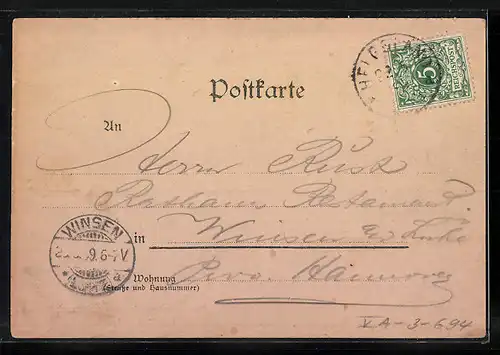 Postkarte
5
REICHSPOST
An
Herrn Rust
Rathaus Restaurant.
WINSEN
in Winsen
9.6-7V
Wohnung
Prov. Hannover
(Straße und Hausnummer)
VA-3-694